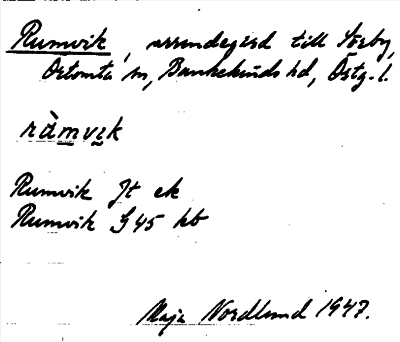 Rumvik, arrendegård till Torby,
Örtomta sn, Bankekinds hd, Östg. l.
ràmvik
Rumvik Jt ek
Rumvik G 45 kb
Maja Nordlund 1947.